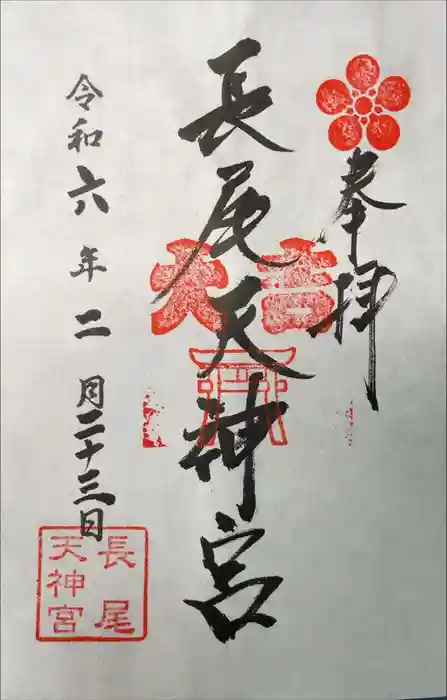 奉拝
長尾天神宮
大吉
令和六年二月二十三日
長尾
天神宮